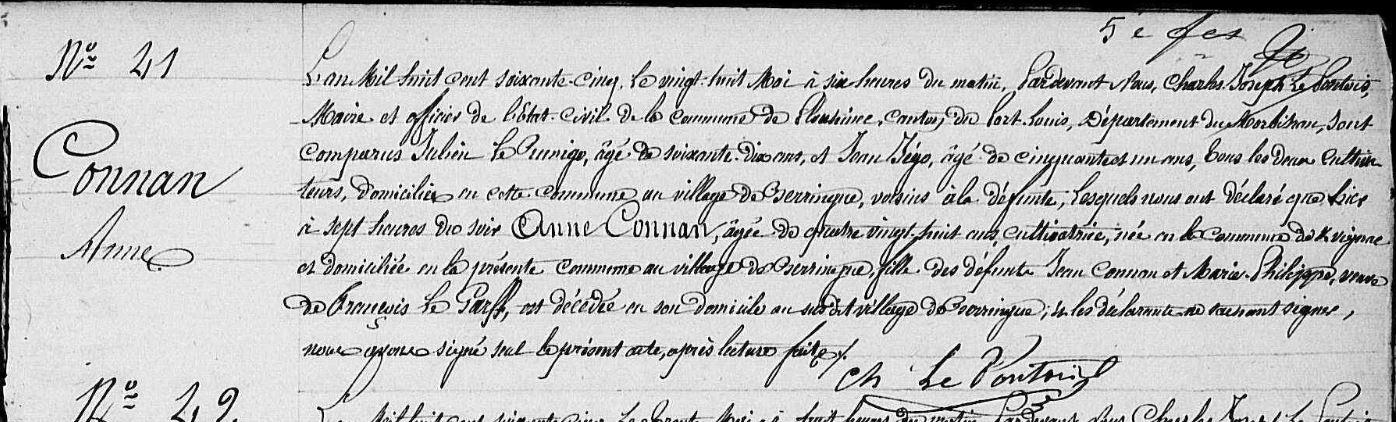 5e fet
Nº 41
Connan
Anne
L'an Mil huit cent soixante-cinq, le vingt-huit Mai à six heures du matin, Pardevant Nous, Charles Joseph Le Pontois,
Maire et officier de l'Etat-civil de la Commune de Plouhinec, canton du Port-Louis, Département du Morbihan, sont
comparus Julien Le Runigo, âgé de soixante-dix ans, et Jean Jégo, âgé de cinquante et un ans, tous les deux cultiva
teurs, domiciliés en cette commune au village de Berringue, voisins à la défunte, lesquels nous ont déclaré que hier
à sept heures du soir Anne Connan, âgée de quatre vingt-huit ans cultivatrice, née en la commune de Kvignac
et domiciliée en la présente commune au village de Berringue, fille des défunts Jean Connan et Marie Philippe, veuve
de François Le Garff, est décédée en son domicile au susdit village de Berringue; et les déclarants ne sachant signer,
nous avons signé seul le présent acte, après lecture faite.
Ch Le Pontois
Nº 42
L'an Mil huit cent soixante cinq, le trente Mai à huit heures du matin, Pardevant Nous Charles Joseph Le Pontois